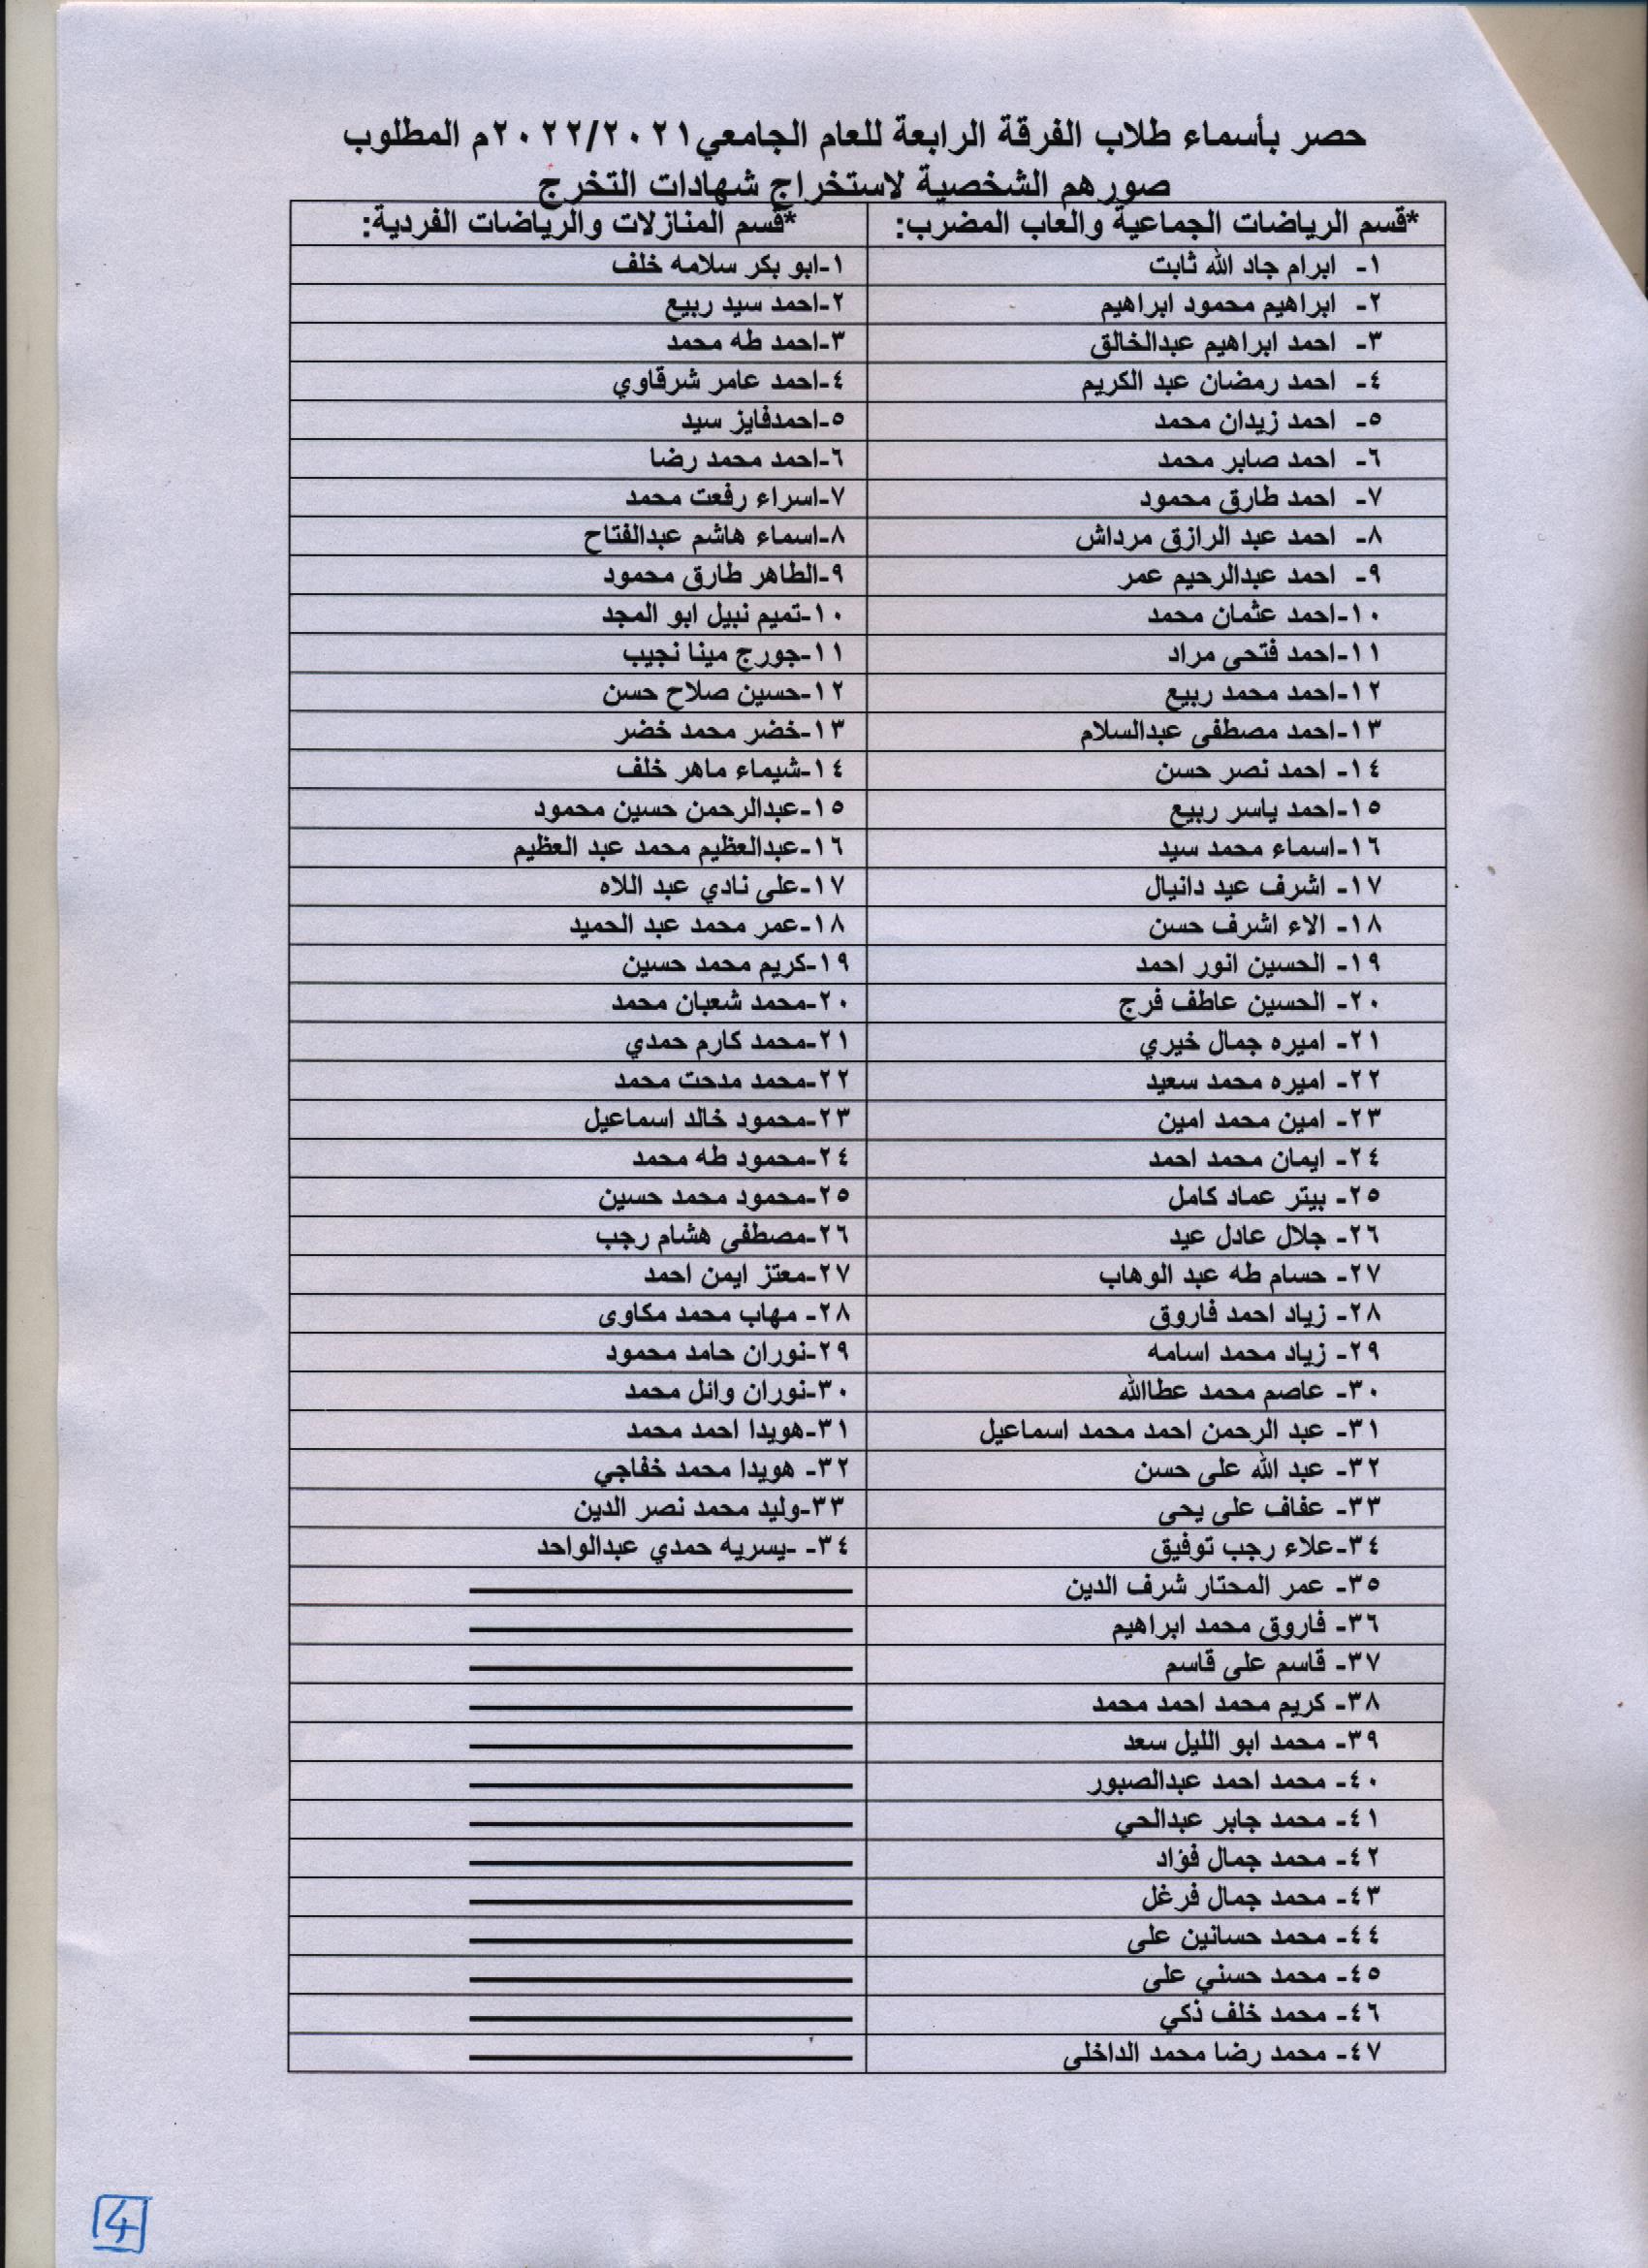 حصر بأسماء طلاب الفرقة الرابعة للعام الجامعي٢٠٢٢/٢٠٢١م المطلوب
صورهم الشخصية لاستخراج شهادات التخرج
*قسم الرياضات الجماعية والعاب المضرب: *قسم المنازلات والرياضات الفردية:
١- ابرام جاد الله ثابت ١-ابو بكر سلامه خلف
٢- ابراهيم محمود ابراهيم ٢-احمد سيد ربيع
٣- احمد ابراهيم عبدالخالق ٣-احمد طه محمد
٤- احمد رمضان عبد الكريم ٤-احمد عامر شرقاوي
٥- احمد زيدان محمد ٥-احمدفايز سيد
٦- احمد صابر محمد ٦-احمد محمد رضا
٧- احمد طارق محمود ٧-اسراء رفعت محمد
٨- احمد عبد الرازق مرداش ٨-اسماء هاشم عبدالفتاح
٩- احمد عبدالرحيم عمر ٩-الطاهر طارق محمود
١٠-احمد عثمان محمد ١٠-تميم نبيل ابو المجد
١١-احمد فتحى مراد ١١-جورج مينا نجيب
١٢-احمد محمد ربيع ١٢-حسين صلاح حسن
١٣-احمد مصطفى عبدالسلام ١٣-خضر محمد خضر
١٤- احمد نصر حسن ١٤-شيماء ماهر خلف
١٥-احمد ياسر ربيع ١٥-عبدالرحمن حسين محمود
١٦-اسماء محمد سيد ١٦-عبدالعظيم محمد عبد العظيم
١٧- اشرف عيد دانيال ١٧-على نادي عبد اللاه
١٨- الاء اشرف حسن ١٨-عمر محمد عبد الحميد
١٩- الحسين انور احمد ١٩-كريم محمد حسين
٢٠- الحسين عاطف فرج ٢٠-محمد شعبان محمد
٢١- اميره جمال خيري ٢١-محمد كارم حمدي
٢٢- اميره محمد سعيد ٢٢-محمد مدحت محمد
٢٣- امين محمد امين ٢٣-محمود خالد اسماعيل
٢٤- ايمان محمد احمد ٢٤-محمود طه محمد
٢٥- بيتر عماد كامل ٢٥-محمود محمد حسين
٢٦- جلال عادل عيد ٢٦-مصطفى هشام رجب
٢٧- حسام طه عبد الوهاب ٢٧-معتز ايمن احمد
٢٨- زياد احمد فاروق ٢٨- مهاب محمد مكاوى
٢٩- زياد محمد اسامه ٢٩-نوران حامد محمود
٣٠- عاصم محمد عطاالله ٣٠-نوران وائل محمد
٣١- عبد الرحمن احمد محمد اسماعيل ٣١-هويدا احمد محمد
٣٢- عبد الله على حسن ٣٢- هويدا محمد خفاجي
٣٣- عفاف على يحى ٣٣-وليد محمد نصر الدين
٣٤-علاء رجب توفيق ٣٤- -يسريه حمدي عبدالواحد
٣٥- عمر المحتار شرف الدين
٣٦- فاروق محمد ابراهيم
٣٧- قاسم على قاسم
٣٨- كريم محمد احمد محمد
٣٩- محمد ابو الليل سعد
٤٠- محمد احمد عبدالصبور
٤١- محمد جابر عبدالحي
٤٢- محمد جمال فؤاد
٤٣- محمد جمال فرغل
٤٤- محمد حسانين على
٤٥- محمد حسني على
٤٦- محمد خلف ذكي
٤٧- محمد رضا محمد الداخلى
4